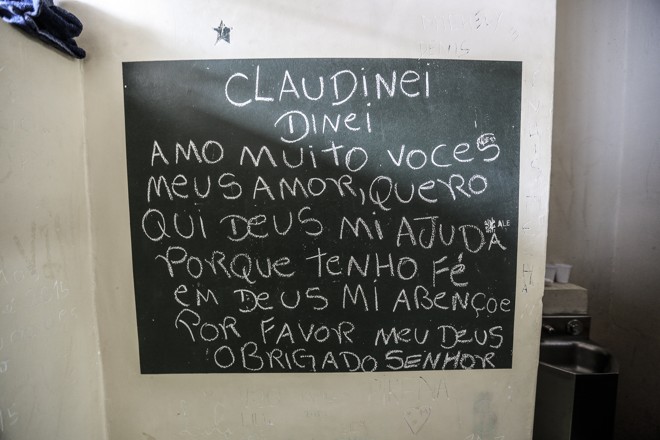 CLAUDINEI
DINEI
AMO MUITO VOCES
MEUS AMOR, QUERO
QUI DEUS MI AJUDA
ALE
PORQUE TENHO FÉ
EM DEUS MI ABENÇOE
POR FAVOR MEU DEUS
OBRIGADO SENHOR